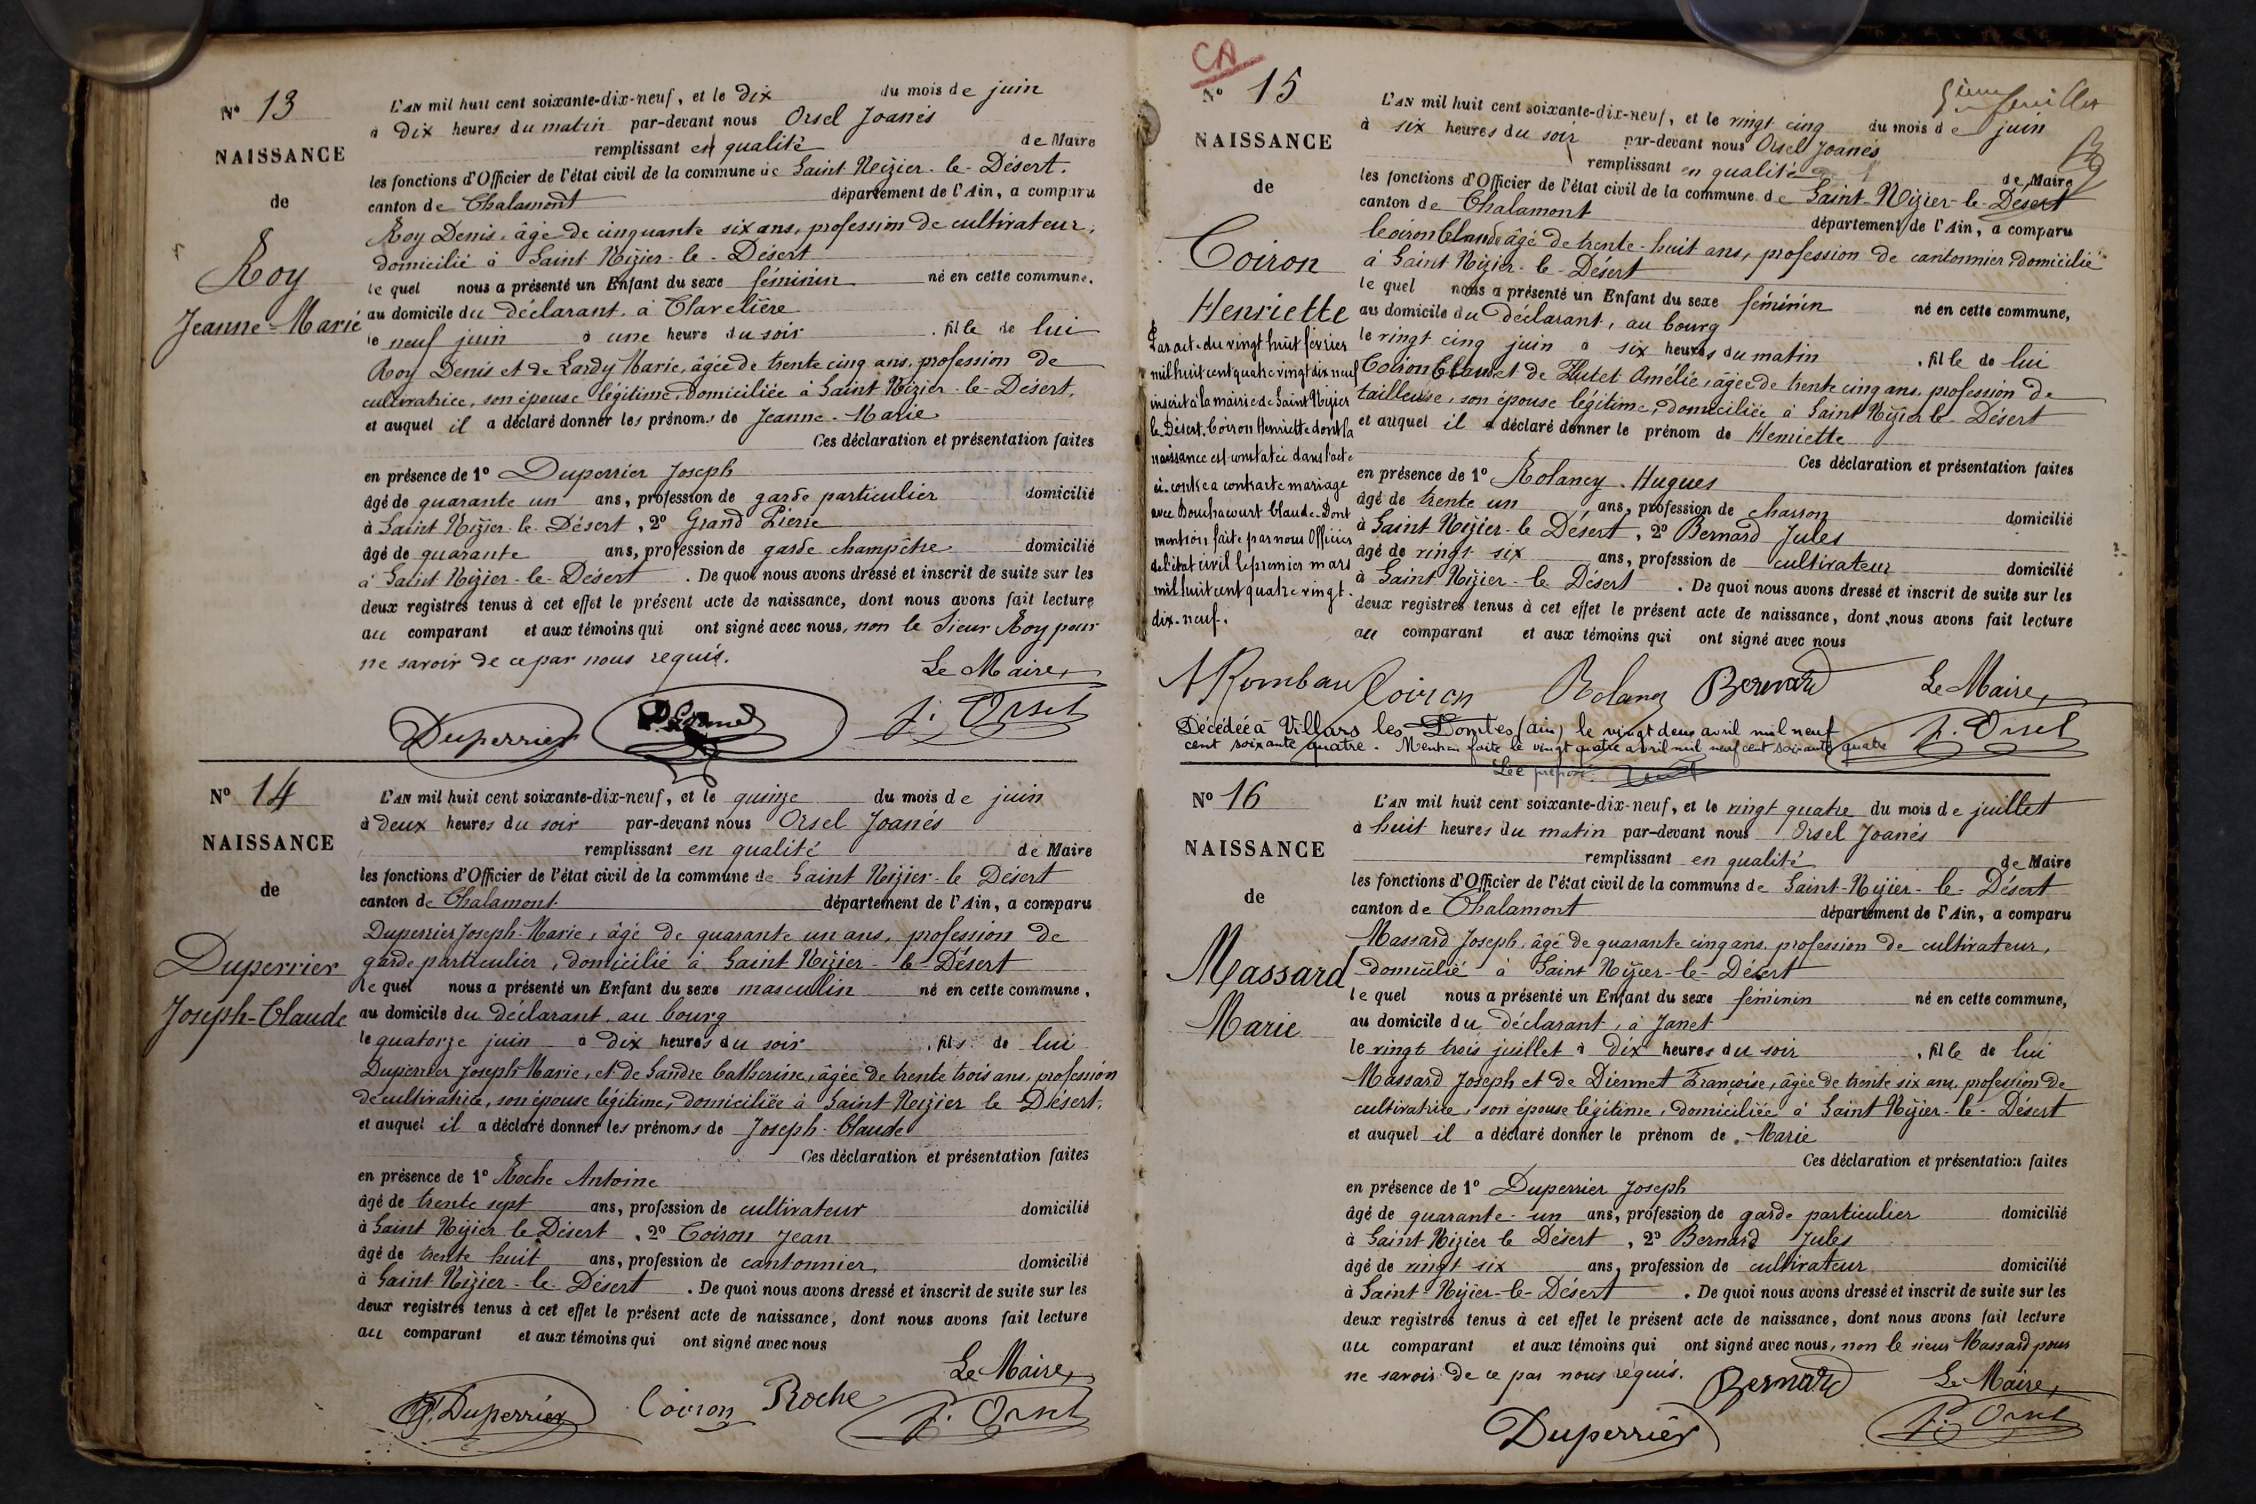 Nº 13
NAISSANCE
de
Roy
Jeanne-Marie
L'AN mil huit cent soixante-dix-neuf, et le dix du mois de juin
à dix heures du matin par-devant nous Orsel Joanès
remplissant en qualité de Maire
les fonctions d'Officier de l'état civil de la commune de Saint Nizier-le-Désert.
canton de Chalamont département de l'Ain, a comparu
Roy Denis, âgé de cinquante six ans, profession de cultivateur,
domicilié à Saint Nizier-le-Désert
le quel nous a présenté un Enfant du sexe féminin né en cette commune.
au domicile du déclarant, à Clavelière
le neuf juin à une heure du soir . fille de lui
Roy Denis et de Lardy Marie, âgée de trente cinq ans, profession de
cultivatrice, son épouse légitime, domiciliée à Saint Nizier-le-Désert,
et auquel il a déclaré donner les prénoms de Jeanne-Marie
Ces déclaration et présentation faites
en présence de 1º Duperrier Joseph
âgé de quarante un ans, profession de garde particulier domicilié
à Saint Nizier-le-Désert, 2º Grand Pierre
âgé de quarante ans, profession de garde champêtre domicilié
à Saint Nizier-le-Désert . De quoi nous avons dressé et inscrit de suite sur les
deux registres tenus à cet effet le présent acte de naissance, dont nous avons fait lecture
au comparant et aux témoins qui ont signé avec nous, non le sieur Roy pour
ne savoir de ce par nous requis.
Le Maire,
Duperrier J. Orsel
Nº 14
NAISSANCE
de
Duperrier
Joseph-Claude
L'AN mil huit cent soixante-dix-neuf, et le quinze du mois de juin
à deux heures du soir par-devant nous Orsel Joanès
remplissant en qualité de Maire
les fonctions d'Officier de l'état civil de la commune de Saint Nizier-le Désert
canton de Chalamont département de l'Ain, a comparu
Duperrier Joseph-Marie, âgé de quarante un ans, profession de
garde particulier, domicilié à Saint Nizier-le-Désert
le quel nous a présenté un Enfant du sexe masculin né en cette commune,
au domicile du déclarant, au bourg
le quatorze juin à dix heures du soir , fils de lui
Duperrier Joseph Marie, et de Sandre Catherine, âgée de trente trois ans, profession
de cultivatrice, son épouse légitime, domiciliée à Saint Nizier le Désert,
et auquel il a déclaré donner les prénoms de Joseph-Claude
Ces déclaration et présentation faites
en présence de 1º Roche Antoine
âgé de trente sept ans, profession de cultivateur domicilié
à Saint Nizier le Désert , 2º Coiron Jean
âgé de trente huit ans, profession de cantonnier, domicilié
à Saint Nizier-le-Désert . De quoi nous avons dressé et inscrit de suite sur les
deux registres tenus à cet effet le présent acte de naissance, dont nous avons fait lecture
au comparant et aux témoins qui ont signé avec nous
Le Maire,
Duperrier Coiron Roche J. Orsel
CA
5ième feuillet
Nº 15
NAISSANCE
de
Coiron
Henriette
Par acte du vingt huit février
mil huit cent quatre vingt dix neuf
inscrit à la mairie de Saint Nizier
le Désert, Coiron Henriette dont la
naissance est constatée dans l'acte
ci-contre a contracté mariage
avec Bouchacourt Claude. Dont
mention faite par nous Officier
de l'état civil le premier mars
mil huit cent quatre vingt-
dix-neuf.
L'AN mil huit cent soixante-dix-neuf, et le vingt cinq du mois de juin
à six heures du soir par-devant nous Orsel Joanès
remplissant en qualité de Maire
les fonctions d'Officier de l'état civil de la commune de Saint-Nizier-le-Désert
canton de Chalamont département de l'Ain, a comparu
Coiron Claude âgé de trente-huit ans, profession de cantonnier, domicilié
à Saint Nizier-le-Désert
le quel nous a présenté un Enfant du sexe féminin né en cette commune,
au domicile du déclarant, au bourg
le vingt cinq juin à six heures du matin , fille de lui
Coiron Claude et de Hutet Amélie, âgée de trente cinq ans, profession de
tailleuse, son épouse légitime, domiciliée à Saint Nizier le-Désert
et auquel il a déclaré donner le prénom de Henriette
Ces déclaration et présentation faites
en présence de 1º Rolancy Hugues
âgé de trente un ans, profession de charron domicilié
à Saint Nizier-le Désert , 2º Bernard Jules
âgé de vingt six ans, profession de cultivateur domicilié
à Saint Nizier-le Désert . De quoi nous avons dressé et inscrit de suite sur les
deux registres tenus à cet effet le présent acte de naissance, dont nous avons fait lecture
au comparant et aux témoins qui ont signé avec nous
Coiron Bernard Le Maire,
J. Orsel
Décédée à Villars les Dombes (ain) le vingt deux avril mil neuf
cent soixante quatre. Mention faite le vingt quatre avril mil neuf cent soixante quatre
Nº 16
NAISSANCE
de
Massard
Marie
L'AN mil huit cent soixante-dix-neuf, et le vingt quatre du mois de juillet
à huit heures du matin par-devant nous Orsel Joanès
remplissant en qualité de Maire
les fonctions d'Officier de l'état civil de la commune de Saint-Nizier-le-Désert
canton de Chalamont département de l'Ain, a comparu
Massard Joseph, âgé de quarante cinq ans, profession de cultivateur,
domicilié à Saint Nizier-le-Désert
le quel nous a présenté un Enfant du sexe féminin né en cette commune,
au domicile du déclarant, à Janet
le vingt trois juillet à dix heures du soir , fille de lui
Massard Joseph et de Diennet Françoise, âgée de trente six ans, profession de
cultivatrice, son épouse légitime, domiciliée à Saint Nizier-le-Désert
et auquel il a déclaré donner le prénom de Marie
Ces déclaration et présentation faites
en présence de 1º Duperrier Joseph
âgé de quarante-un ans, profession de garde particulier domicilié
à Saint-Nizier le Désert , 2º Bernard Jules
âgé de vingt six ans, profession de cultivateur domicilié
à Saint Nizier-le-Désert . De quoi nous avons dressé et inscrit de suite sur les
deux registres tenus à cet effet le présent acte de naissance, dont nous avons fait lecture
au comparant et aux témoins qui ont signé avec nous, non le sieur Massard pour
ne savoir de ce par nous requis. Bernard Le Maire,
Duperrier J. Orsel